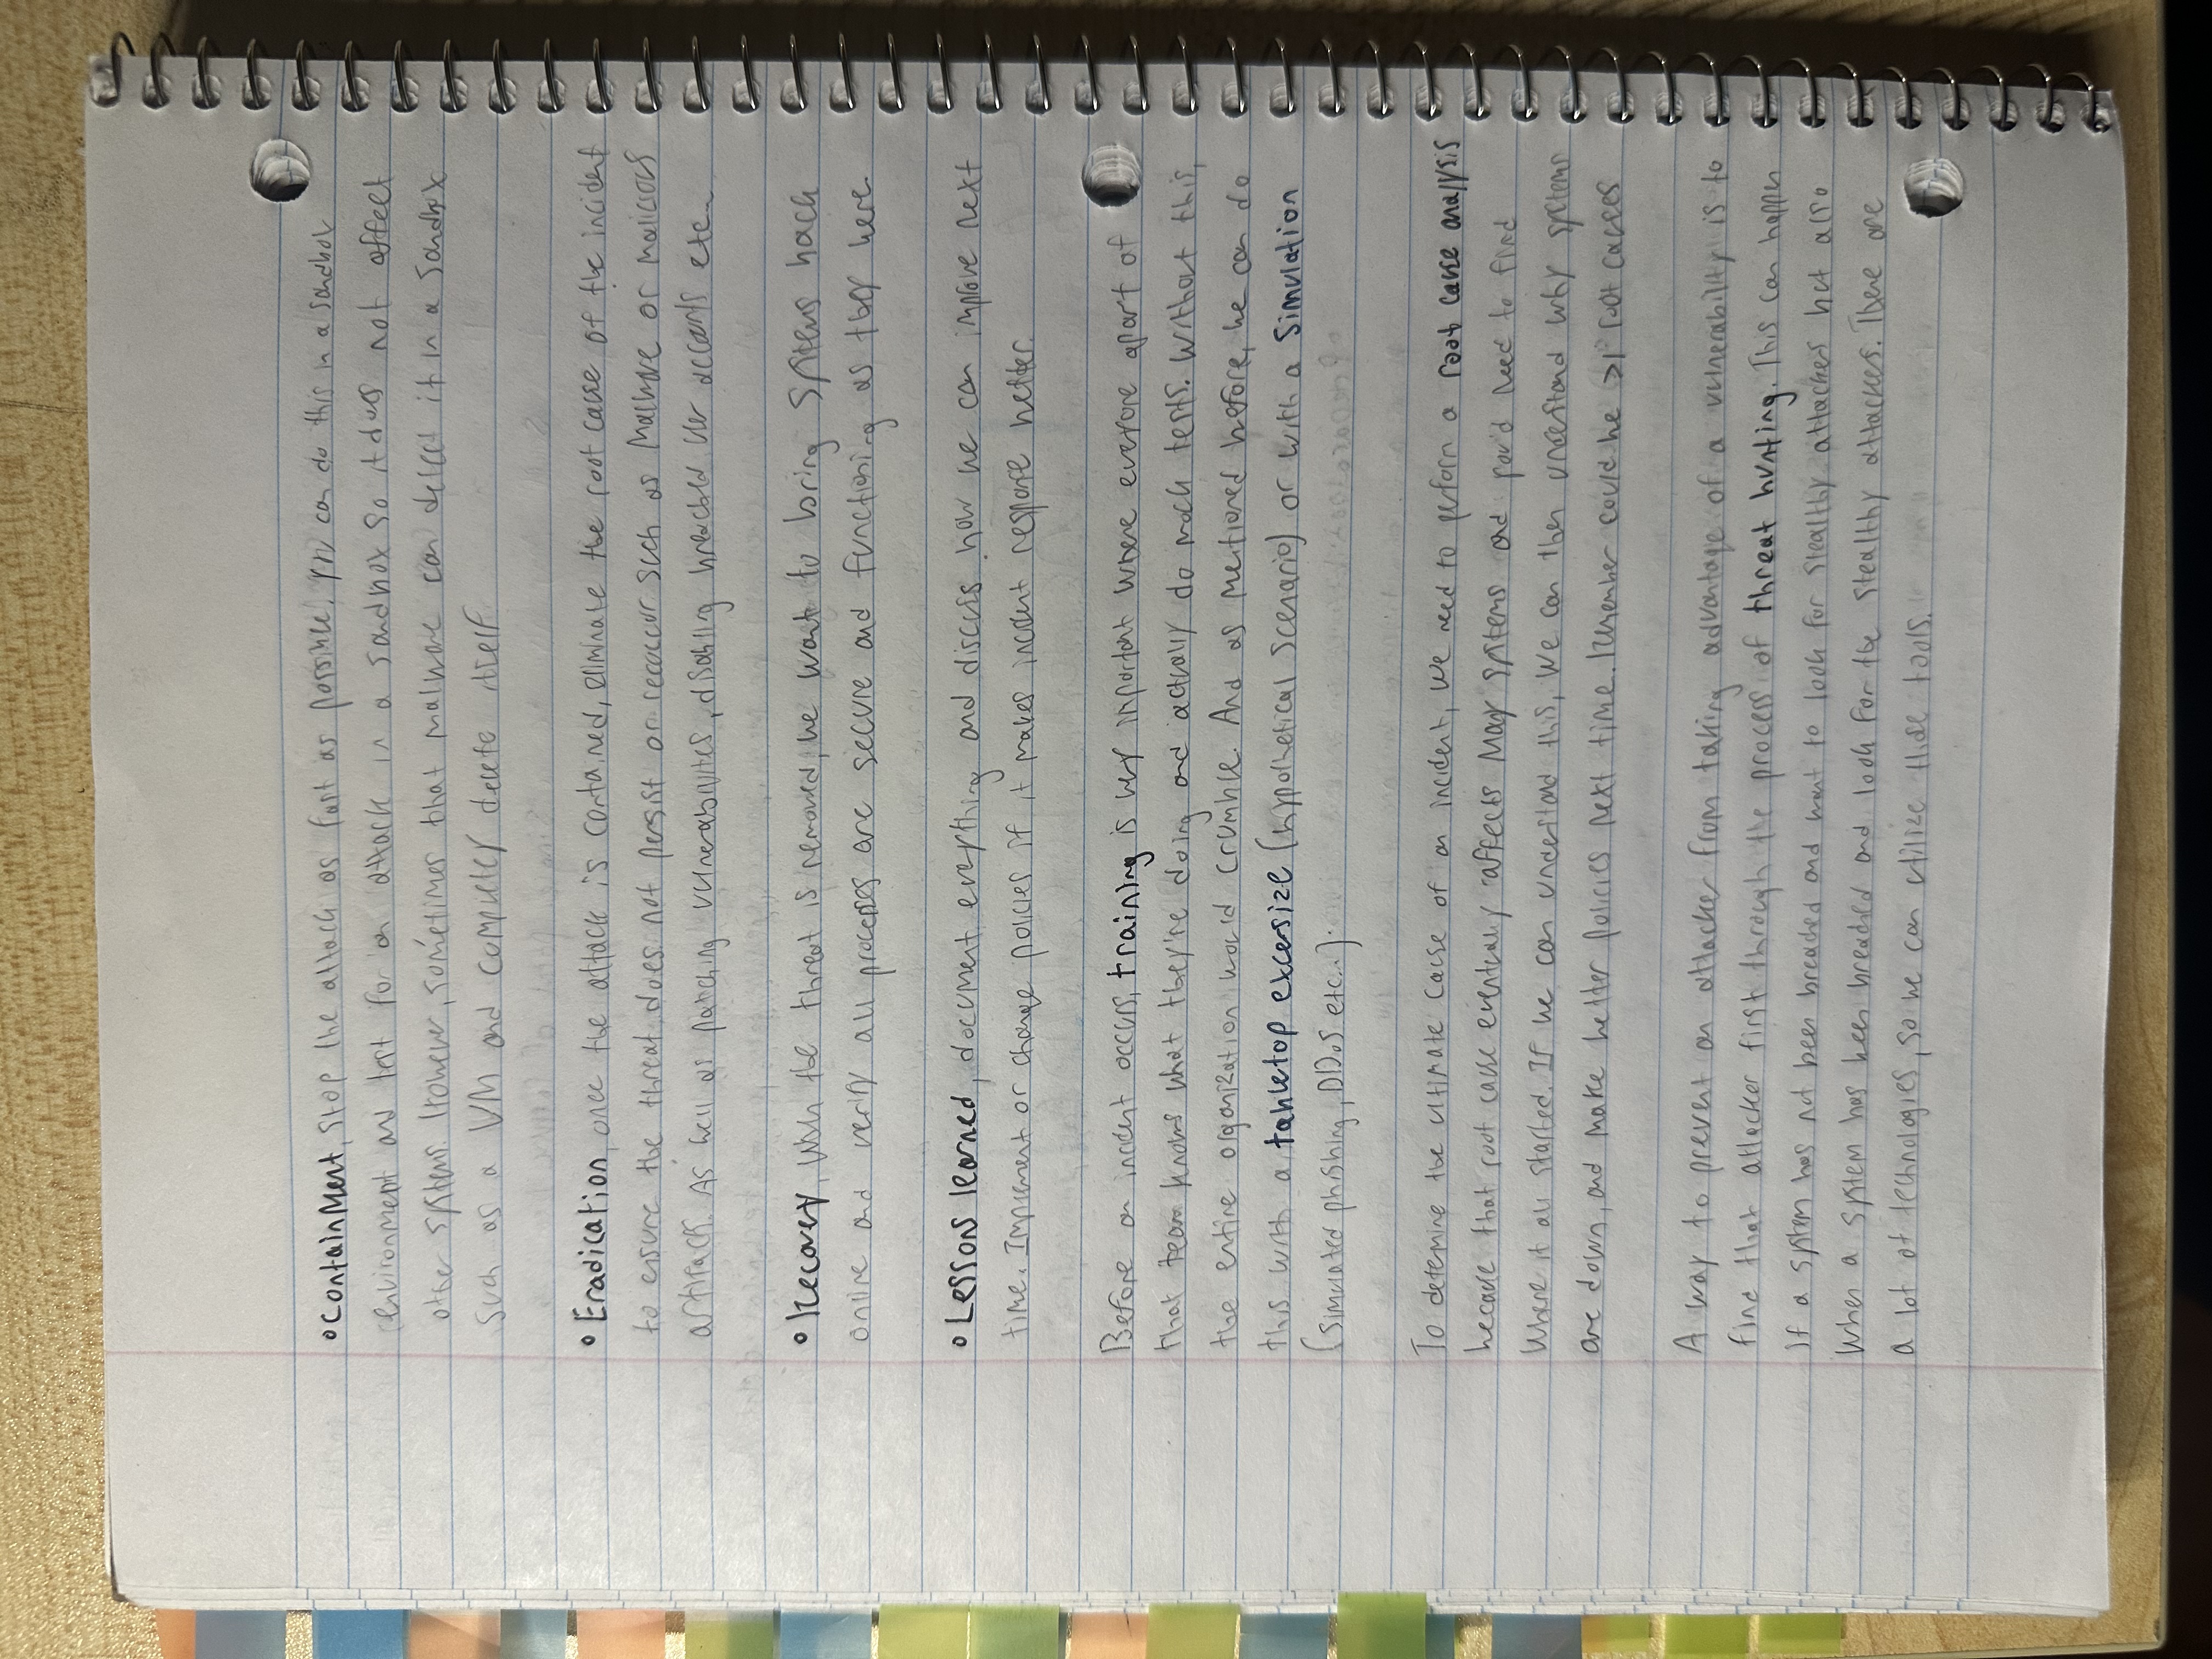 • Containment, stop the attack as fast as possible. You can do this in a sandbox
environment and test for an attack in a sandbox so it does not affect
other systems. However, sometimes that malware can detect it in a sandbox
such as a VM and completely delete itself.
• Eradication, once the attack is contained, eliminate the root cause of the incident
to ensure the threat does not persist or reoccur such as Malware or malicious
artifacts. As well as patching vulnerabilities, disabling breached user accounts etc..
• Recovery, with the threat is removed, we want to bring systems back
online and verify all processes are secure and functioning as they were.
• Lessons learned, document everything and discuss how we can improve next
time. Implement or change policies if it makes incident response better.
Before an incident occurs, training is very important where everyone apart of
that team knows what they're doing and actually do mock tests. Without this,
the entire organization would crumble. And as mentioned before, we can do
this with a tabletop excersize (hypothetical scenario) or with a simulation
(simulated phishing, DDoS etc..).
To determine the ultimate cause of an incident, we need to perform a root cause analysis
because that root cause eventually affects many systems and you'd need to find
where it all started. If we can understand this, we can then understand why systems
are down, and make better policies next time. Remember could be >1 root causes
A way to prevent an attacker from taking advantage of a vulnerability is to
find that attacker first through the process of threat hunting. This can happen
if a system has not been breached and want to look for stealthy attackers but also
when a system has been breached and look for the stealthy attackers. There are
a lot of technologies, so we can utilize those tools.